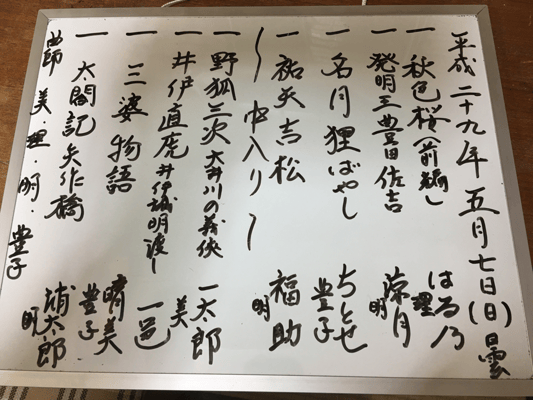 平成二十九年五月七日(日)曇
一 秋色桜(前編) はる乃 理
一 発明王豊田佐吉 月 明
一 名月狸ばやし ちとせ 豊子
一 祐天吉松 福助 明
〜中入り〜
一 野狐三次 大井川の義侠 一太郎 美
一 井伊直虎 井伊城明渡し 一邑
一 三婆物語 晴美 豊子
一 太閤記矢作橋 浦太郎 明
曲師 美・理・明・豊子